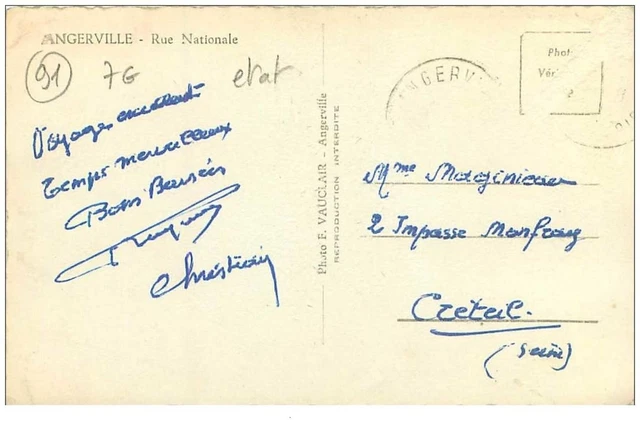 ANGERVILLE - Rue Nationale
91 7G etat
Voyage excellent
temps merveilleux
Bons Baisers
Christian
Photo F. VAUCLAIR - Angerville
REPRODUCTION INTERDITE
ANGERV
Phot
Vér
Mme
2 Impasse
Créteil.
(Seine)